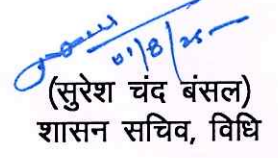 01/8/25
(सुरेश चंद बंसल)
शासन सचिव, विधि